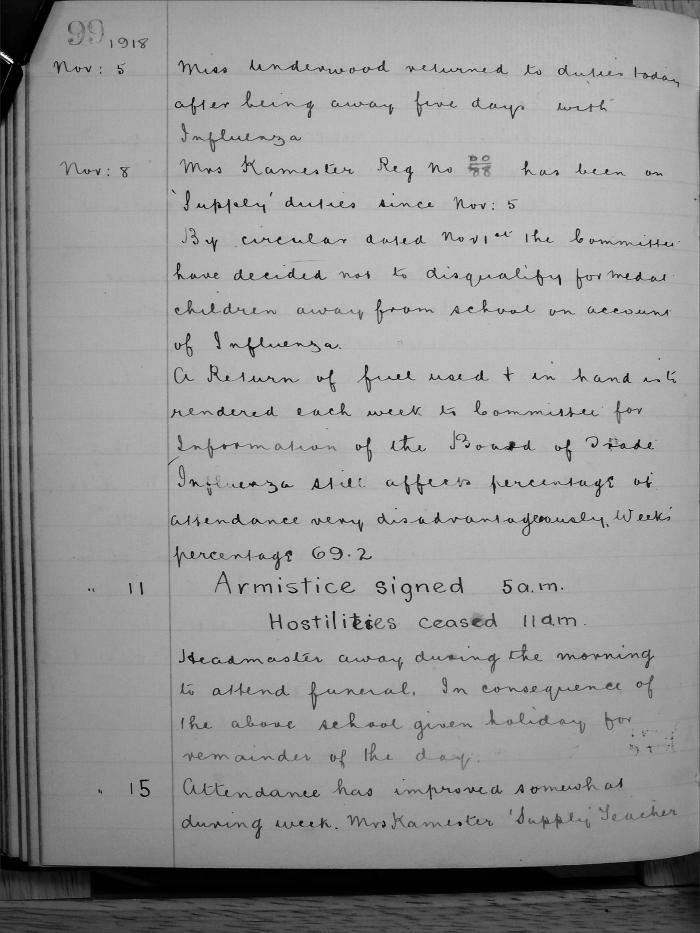 99 1918
Nov: 5 Miss Underwood returned to duties today
after being away five days with
Influenza
Nov: 8 Mrs Kamester Reg No DO/88 has been on
'Supply' duties since Nov: 5
By circular dated Nov 1st the Committee
have decided not to disqualify for medal
children away from school on account
of Influenza.
A Return of fuel used + in hand is to
rendered each week to Committee for
Information of the Board of Trade
Influenza still affects percentage of
attendance very disadvantageously, Weeks
percentage 69.2
" 11 Armistice signed 5 a.m.
Hostilities ceased 11 am.
Headmaster away during the morning
to attend funeral. In consequence of
the above school given holiday for
remainder of the day.
" 15 Attendance has improved somewhat
during week. Mrs Kamester 'Supply' Teacher